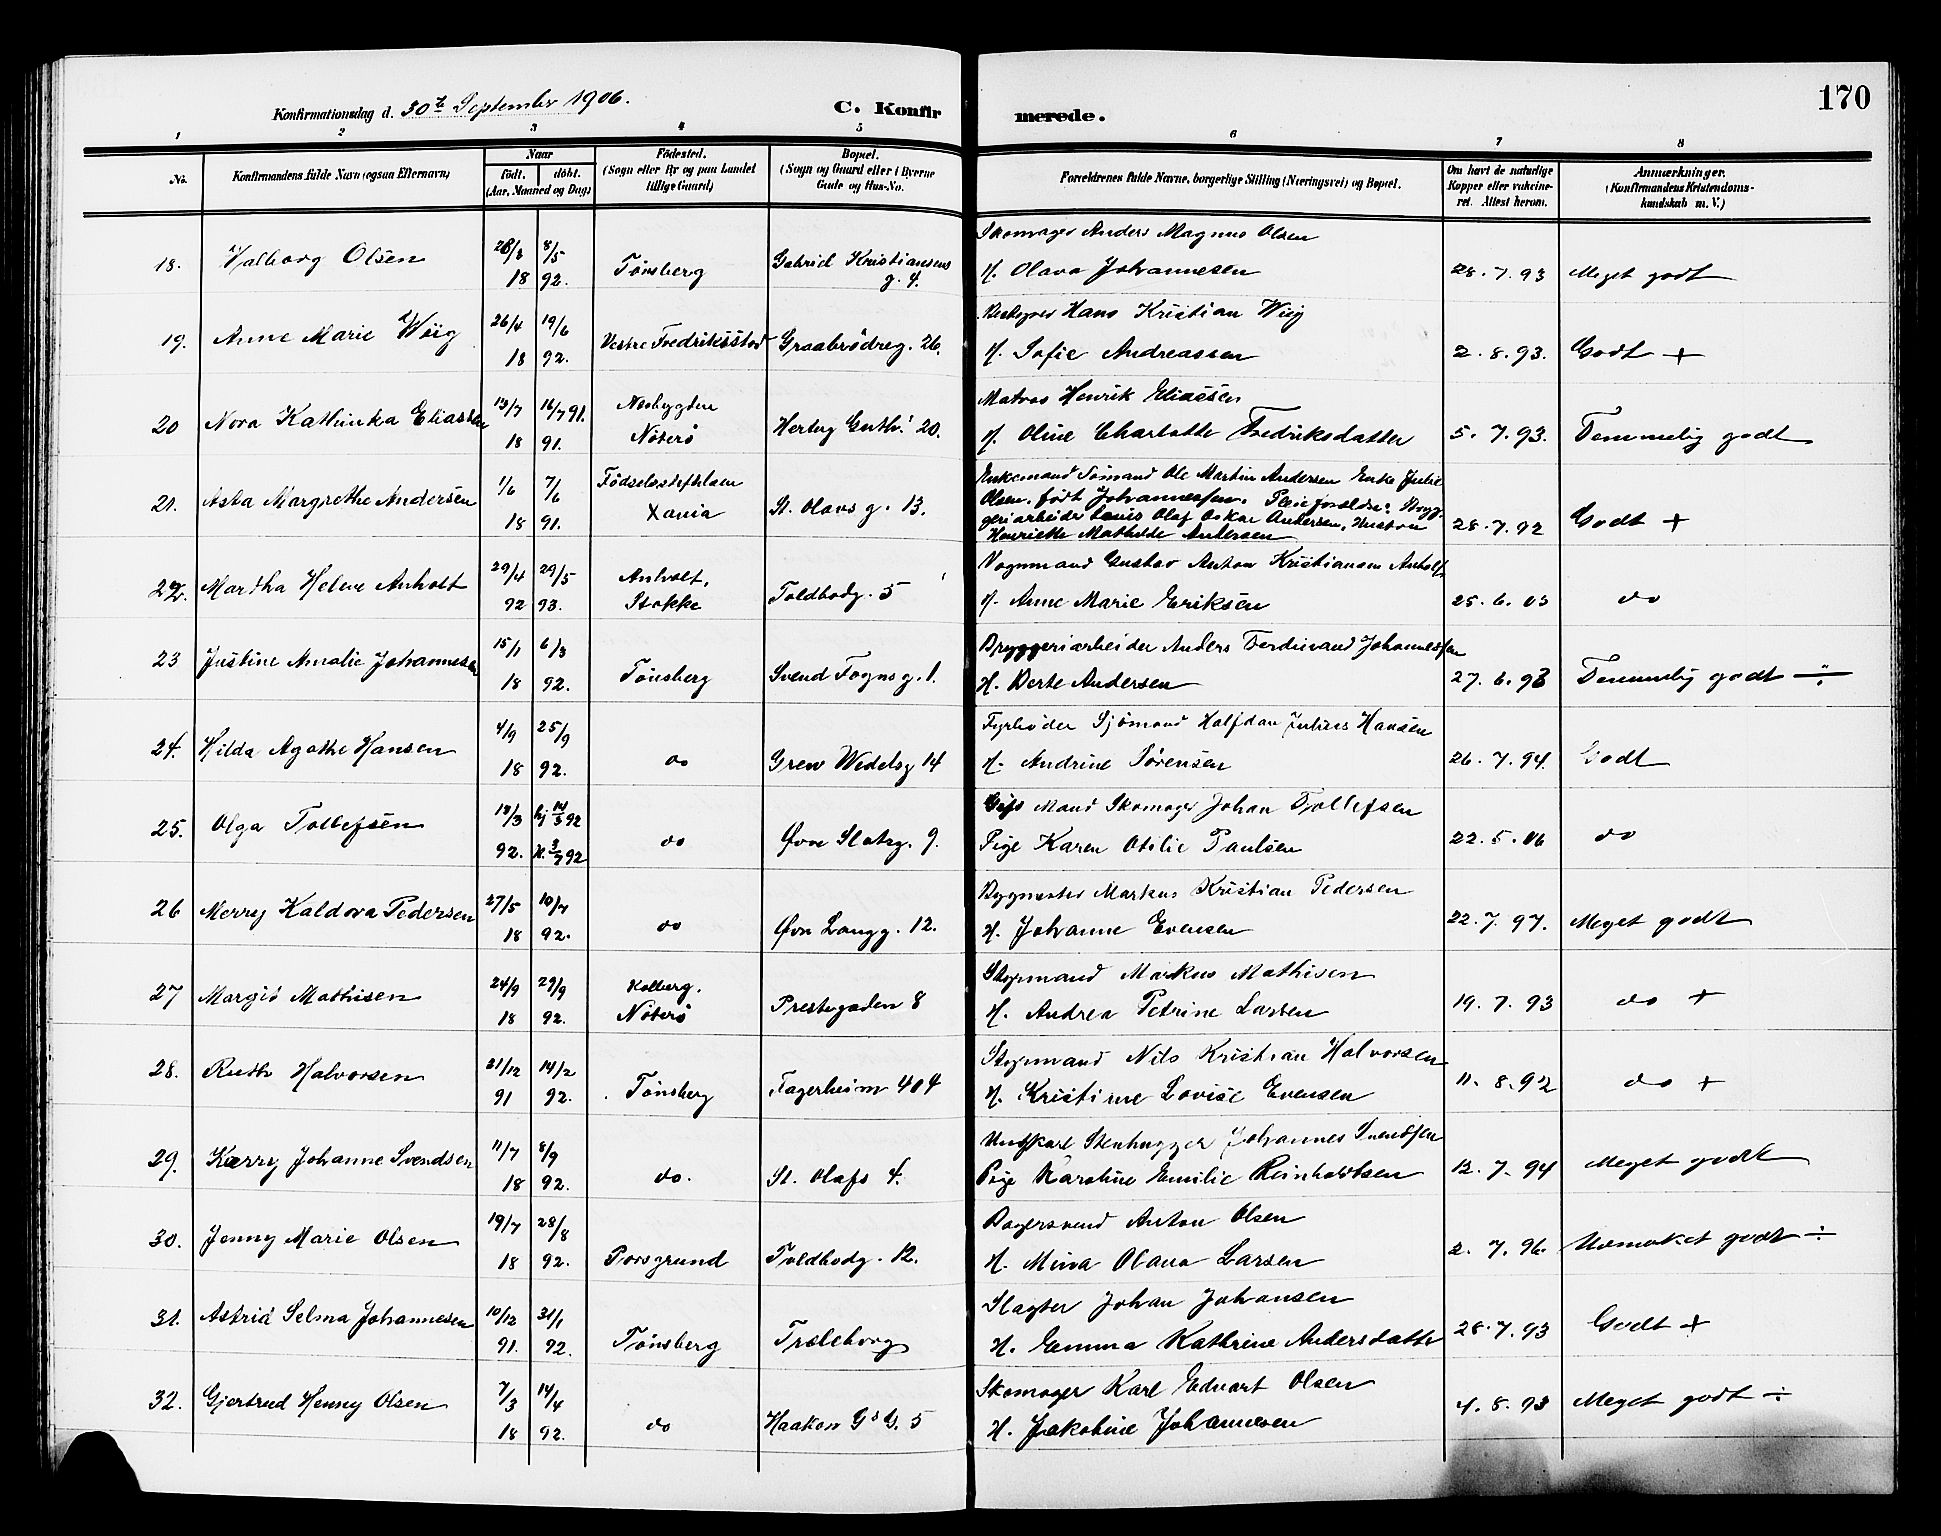 170
Konfirmationsdag d. 30te September 1906. C. Konfirmerede.
1 2 3 4 5 6 7 8
No. Konfirmandens fulde Navn (ogsaa Efternavn)
Naar
födt. döbt.
(Aar, Maaned og Dag)
Födested.
(Sogn eller By og paa Landet
tillige Gaard)
Bopæl.
(Sogn og Gaard eller i Byerne
Gade og Hus-No.
Forældrenes fulde Navne, borgerlige Stilling (Næringsvei) og Bopæl.
Om havt de naturlige
Kopper eller vakcine-
ret. Attest herom.
Anmærkninger.
(Konfirmandens Kristendoms-
kundskab m. V.)
Skomager Anders Magnus Olsen
18. Valborg Olsen 28/3 8/5 18 92. Tönsberg Gabriel Kristiansens g. 4. H. Olava Johannesen 28. 7. 93 Meget godt
Hans Kristian Wiig
19. Anne Marie Wiig 26/4 19/6 18 92. Vestre Fredriksstad Graabrödreg. 26. H. Sofie Andreassen 2. 8. 93. Godt +
Matros Henrik Eliassen
20 Nora Kathinka Eliassen 13/7 16/7 91. 18 91. Nesbygden Nöterö Hertug Guth. 20. H. Oline Charlotte Fredriksdatter 5. 7. 93. Temmelig godt
Enkemand Sömand Ole Martin Andersen Enke Julie
Olsen, födt Johannessen. Pleieforældre: Brygg-
geriarbeider Louis Olaf Oskar Andersen, Hustru
Henriette Mathilde Andersen
21. Asta Margrethe Andersen 1/6 7/6 18 91. Födselsstiftelsen Xania St. Olavs g. 13. 28. 7. 92 Godt +
Vognmand Gustav Anton Kristiansen Anholt
22. Martha Helene Anholt 29/4 29/5 92 93. Anholt, Stokke Toldbodg. 5 H. Anne Marie Eriksen 25. 6. 03 do
Bryggeriarbeider Anders Ferdinand Johannessen
23 Justine Amalie Johannesen 15/1 6/3 18 92. Tönsberg Svend Fogns g. 1. H. Berte Andersen 27. 6. 93 Temmelig godt ÷
Fyrböder Sjömand Halfdan Julius Hansen
24. Hilda Agathe Hansen 4/9 25/9 18 92. do Grev Wedelsg 14 H. Andrine Sörensen 26. 7. 94. Godt
Gift Mand Skomager Johan Tollefsen
25. Olga Tollefsen 13/3 hj 14/3 92 92. K. 3/7 92 do Övre Slotsg. 9. Pige Karen Otilie Paulsen 22. 5. 06 do
Bygmester Markus Kristian Pedersen
26 Merry Kaldora Pedersen 27/5 10/7 18 92. do Övre Langg. 12. H. Johanne Evensen 22. 7. 97. Meget godt
Styrmand Markus Mathisen
27 Margit Mathisen 24/9 29/9 18 92. Kolberg, Nöterö Prestegaden 8 H. Andrea Petrine Larsen 19. 7. 93 do +
Styrmand Nils Kristian Halvorsen
28. Ruth Halvorsen 21/12 14/2 91 92. Tönsberg Fagerheim 404 H. Kristine Lovise Evensen 11. 8. 92 do +
Ungkarl Stenhugger Johannes Svendsen
29. Kærry Johanne Svendsen 11/7 8/9 18 92. do. St. Olafs 4. Pige Karoline Emilie Reinholdtsen 12. 7. 94 Meget godt
Bagersvend Anton Olsen
30. Jenny Marie Olsen 19/7 28/8 18 92. Porsgrund Toldbodg. 12. H. Mina Olava Larsen 2. 7. 96. Udmerket godt ÷
Slagter Johan Johansen
31. Astrid Selma Johannesen 10/12 31/1 91. 92. Tönsberg Træleborg H. Emma Kathrine Andersdatter 28. 7. 93 Godt +
Skomager Karl Edvart Olsen
32. Gjertrud Henny Olsen 7/3 14/4 18 92. do Haakon G's G. 5 H. Jakobine Johannesen 4. 8. 93 Meget godt ÷